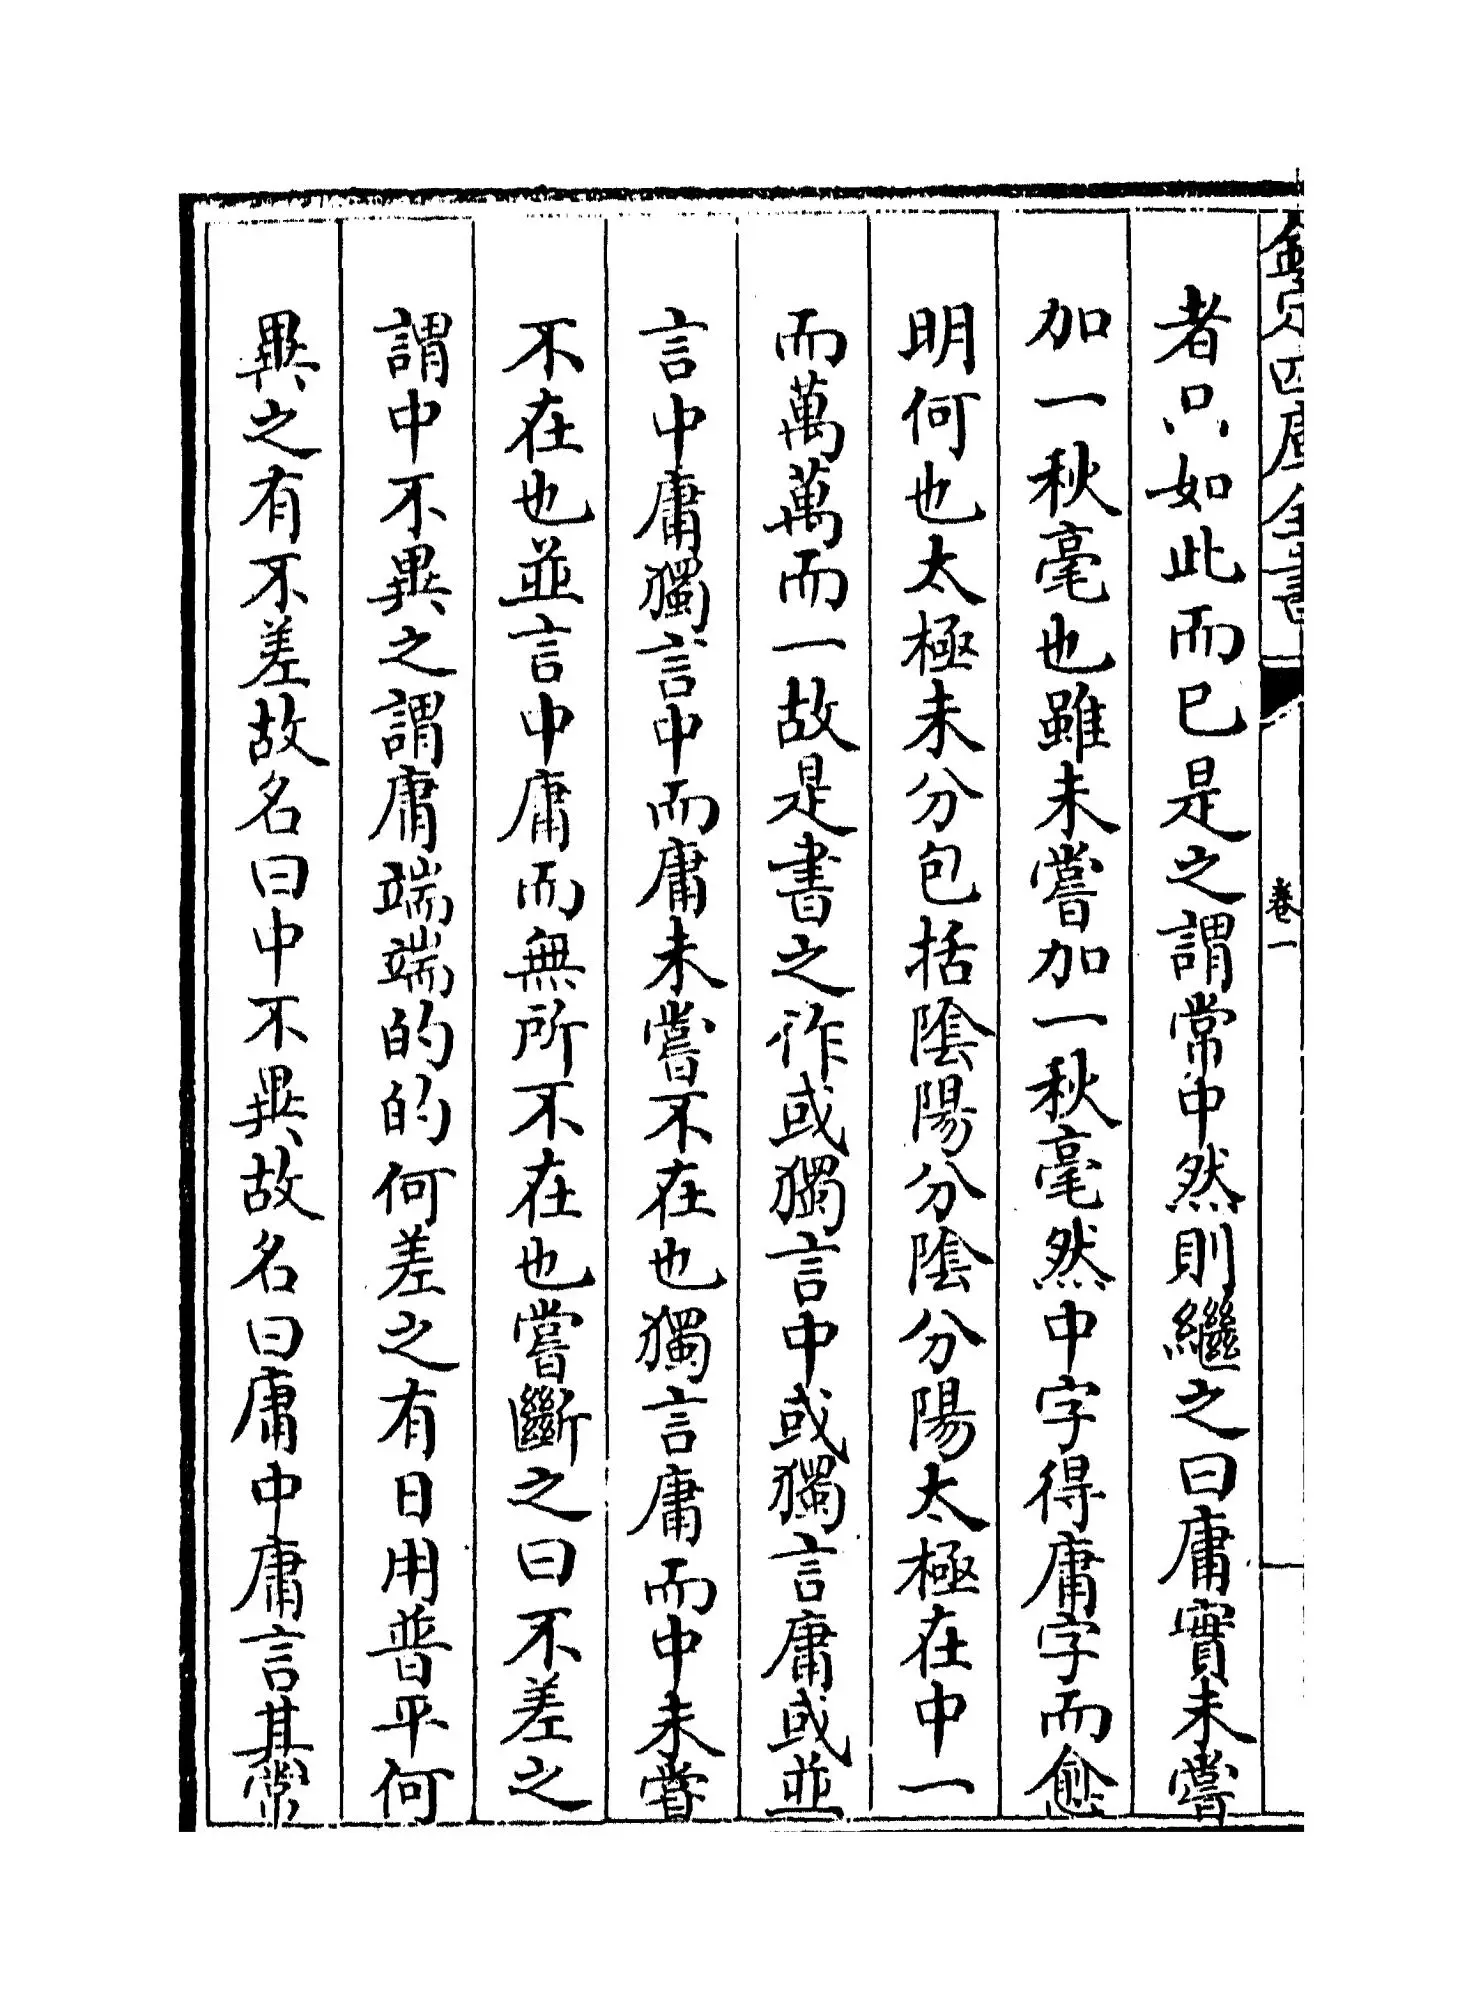 欽定四庫全書
卷一
者只如此而已是之謂常中然則繼之曰庸實未嘗
加一秋毫也雖未嘗加一秋毫然中字得庸字而愈
明何也太極未分包括陰陽分陰分陽太極在中一
而萬萬而一故是書之作或獨言中或獨言庸或並
言中庸獨言中而庸未嘗不在也獨言庸而中未嘗
不在也並言中庸而無所不在也嘗斷之曰不差之
謂中不異之謂庸端端的的何差之有日用普平何
異之有不差故名曰中不異故名曰庸中庸言其常